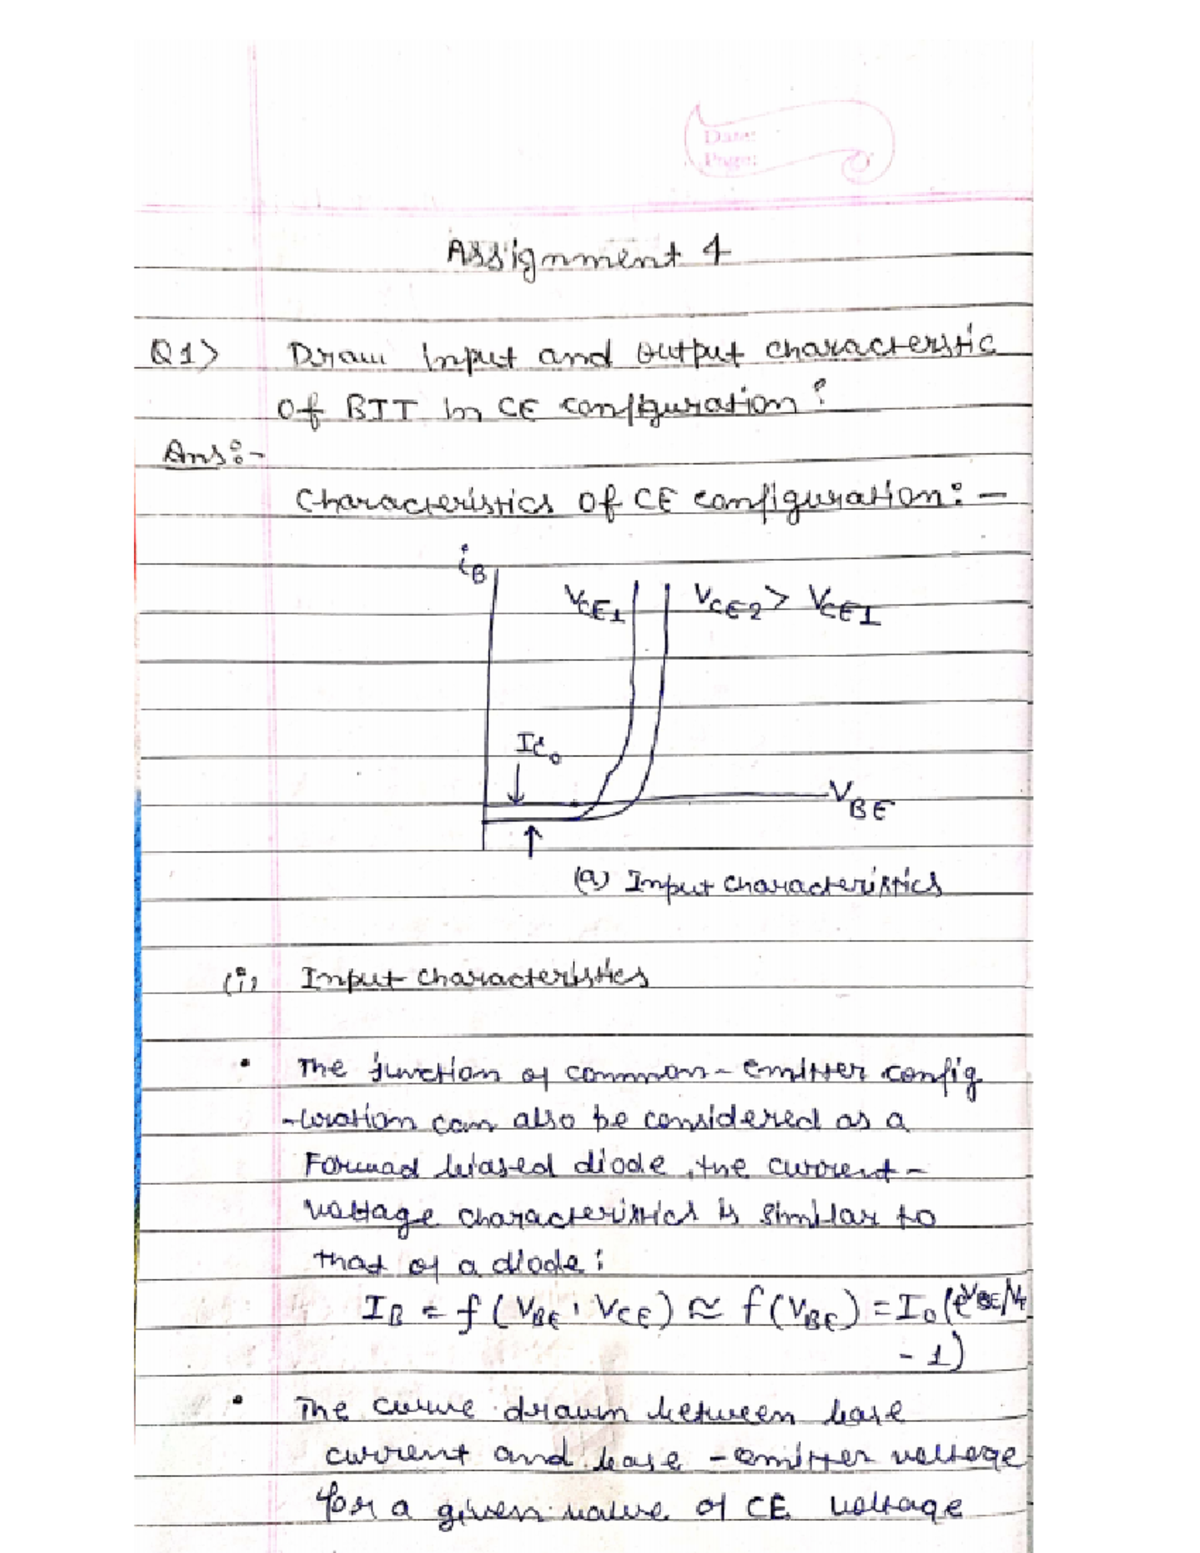 Date:
Page:
Assignment 4
Q1> Draw Input and output characterstic
of BJT in CE configuration?
Ans:-
Characteristics of CE configuration:-
iB
VCE1
VCE2 > VCE1
ICo
VBE
(a) Input characteristics
(i) Input characteristics
• The function of common-emitter config
-uration can also be considered as a
Forward biased diode, the current-
voltage characteristics is similar to
that of a diode:
IB = f(VBE, VCE) ≈ f(VBE) = Io(e^VBE/VT
-1)
• The curve drawn between base
current and base-emitter voltage
for a given value of CE voltage